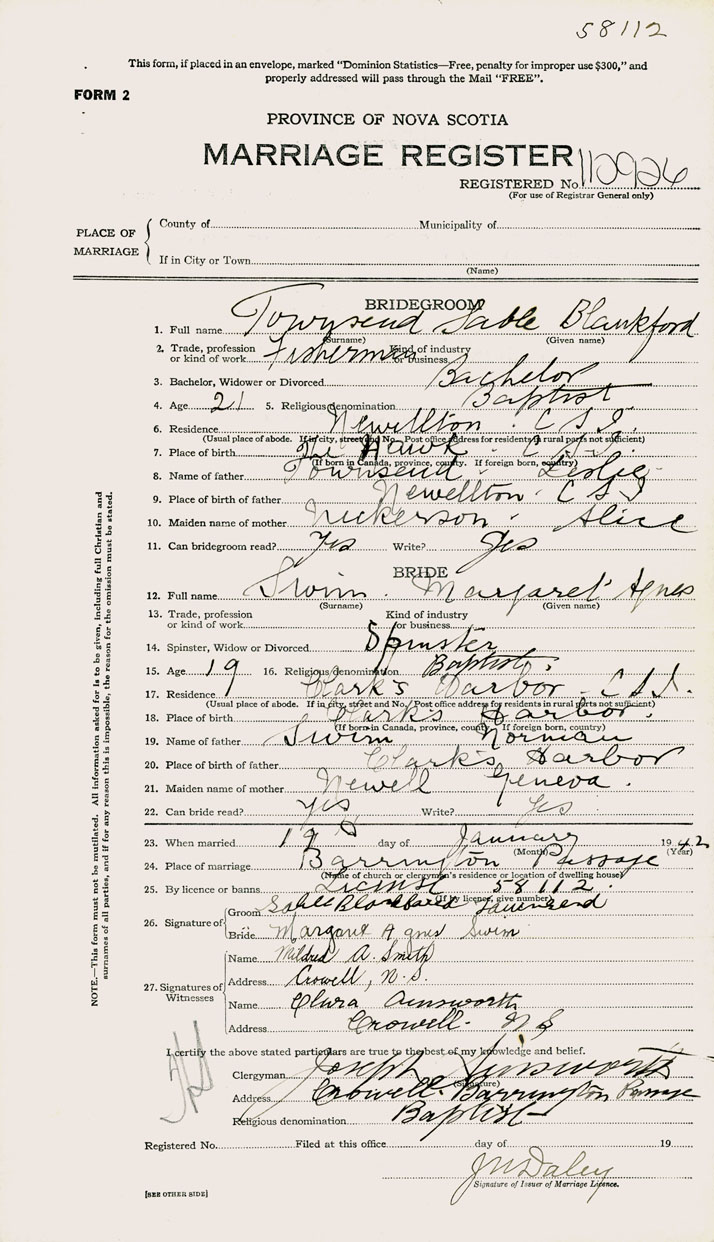 58112
This form, if placed in an envelope, marked "Dominion Statistics—Free, penalty for improper use $300," and
properly addressed will pass through the Mail "FREE".
FORM 2
PROVINCE OF NOVA SCOTIA
MARRIAGE REGISTER
REGISTERED No. 110926
(For use of Registrar General only)
PLACE OF MARRIAGE
County of Municipality of
If in City or Town
(Name)
BRIDEGROOM
1. Full name Townsend Sable Blankford
(Surname) (Given name)
2. Trade, profession or kind of work Fisherman Kind of industry or business
3. Bachelor, Widower or Divorced Bachelor
4. Age 21 5. Religious denomination Baptist
6. Residence Newellton. C S I.
(Usual place of abode. If in city, street and No. Post office address for residents in rural parts not sufficient)
7. Place of birth The Hawk. C. S. I.
(If born in Canada, province, county. If foreign born, country)
8. Name of father Townsend Leslie
9. Place of birth of father Newellton. C S I
10. Maiden name of mother Nickerson. Alice
11. Can bridegroom read? Yes Write? Yes
BRIDE
12. Full name Swim. Margaret Agnes
(Surname) (Given name)
13. Trade, profession or kind of work Kind of industry or business
14. Spinster, Widow or Divorced Spinster
15. Age 19 16. Religious denomination Baptist.
17. Residence Clark's Harbor - C S I.
(Usual place of abode. If in city, street and No. Post office address for residents in rural part not sufficient)
18. Place of birth Clark's Harbor.
(If born in Canada, province, county. If foreign born, country)
19. Name of father Swim Norman
20. Place of birth of father Clark's Harbor
21. Maiden name of mother Newell Geneva.
22. Can bride read? Yes Write? Yes
23. When married 19 day of January 1942
(Month) (Year)
24. Place of marriage Barrington Passage
(Name of church or clergyman's residence or location of dwelling house)
25. By licence or banns License 58112.
(If by licence, give number)
26. Signature of
Groom Sable Blankford Townsend
Bride Margaret Agnes Swim
27. Signatures of Witnesses
Name Mildred A. Smith
Address Crowell, N. S.
Name Clara Ainsworth
Address Crowell. N S
I certify the above stated particulars are true to the best of my knowledge and belief.
Clergyman Joseph Ainsworth
(Signature)
Address Crowell - Barrington Passage
Religious denomination Baptist
Registered No. Filed at this office day of 19
J M Daley
Signature of Issuer of Marriage Licence.
[SEE OTHER SIDE]
NOTE.—This form must not be mutilated. All information asked for is to be given, including full Christian and
surnames of all parties, and if for any reason this is impossible, the reason for the omission must be stated.